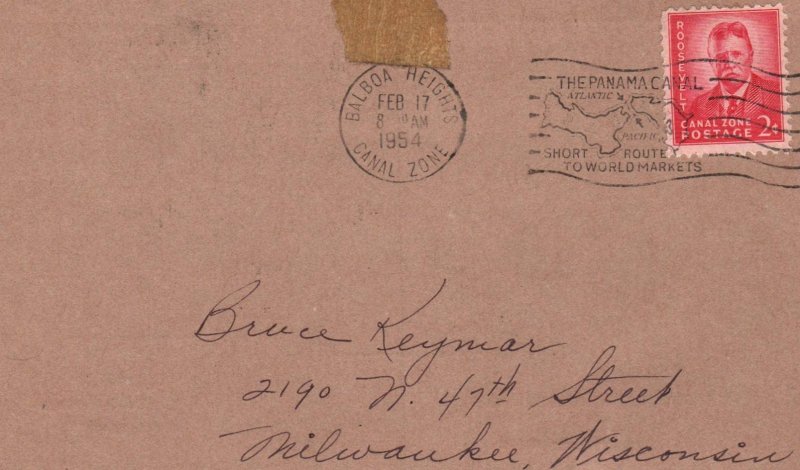 BALBOA HEIGHTS
FEB 17
8 AM
1954
CANAL ZONE
THE PANAMA CANAL
ATLANTIC
PACIFIC
SHORT ROUTE
TO WORLD MARKETS
ROOSEVELT
CANAL ZONE
POSTAGE 2¢
Bruce Keymar
2190 N. 47th Street
Milwaukee, Wisconsin